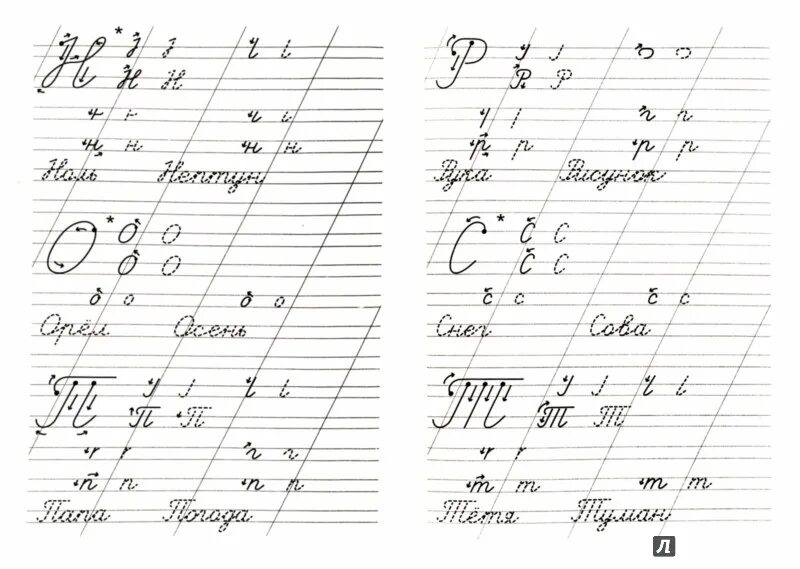 Н *
Н Н
н н н н
Ноль Нептун
О * О О
О О
о о о о
Орёл Осень
П
П П
п п п п
Папа Погода
Р
Р Р
р р р р
Рука Рисунок
С * С С
С С
с с с с
Снег Сова
Т
Т Т
т т т т
Тётя Туман
Л